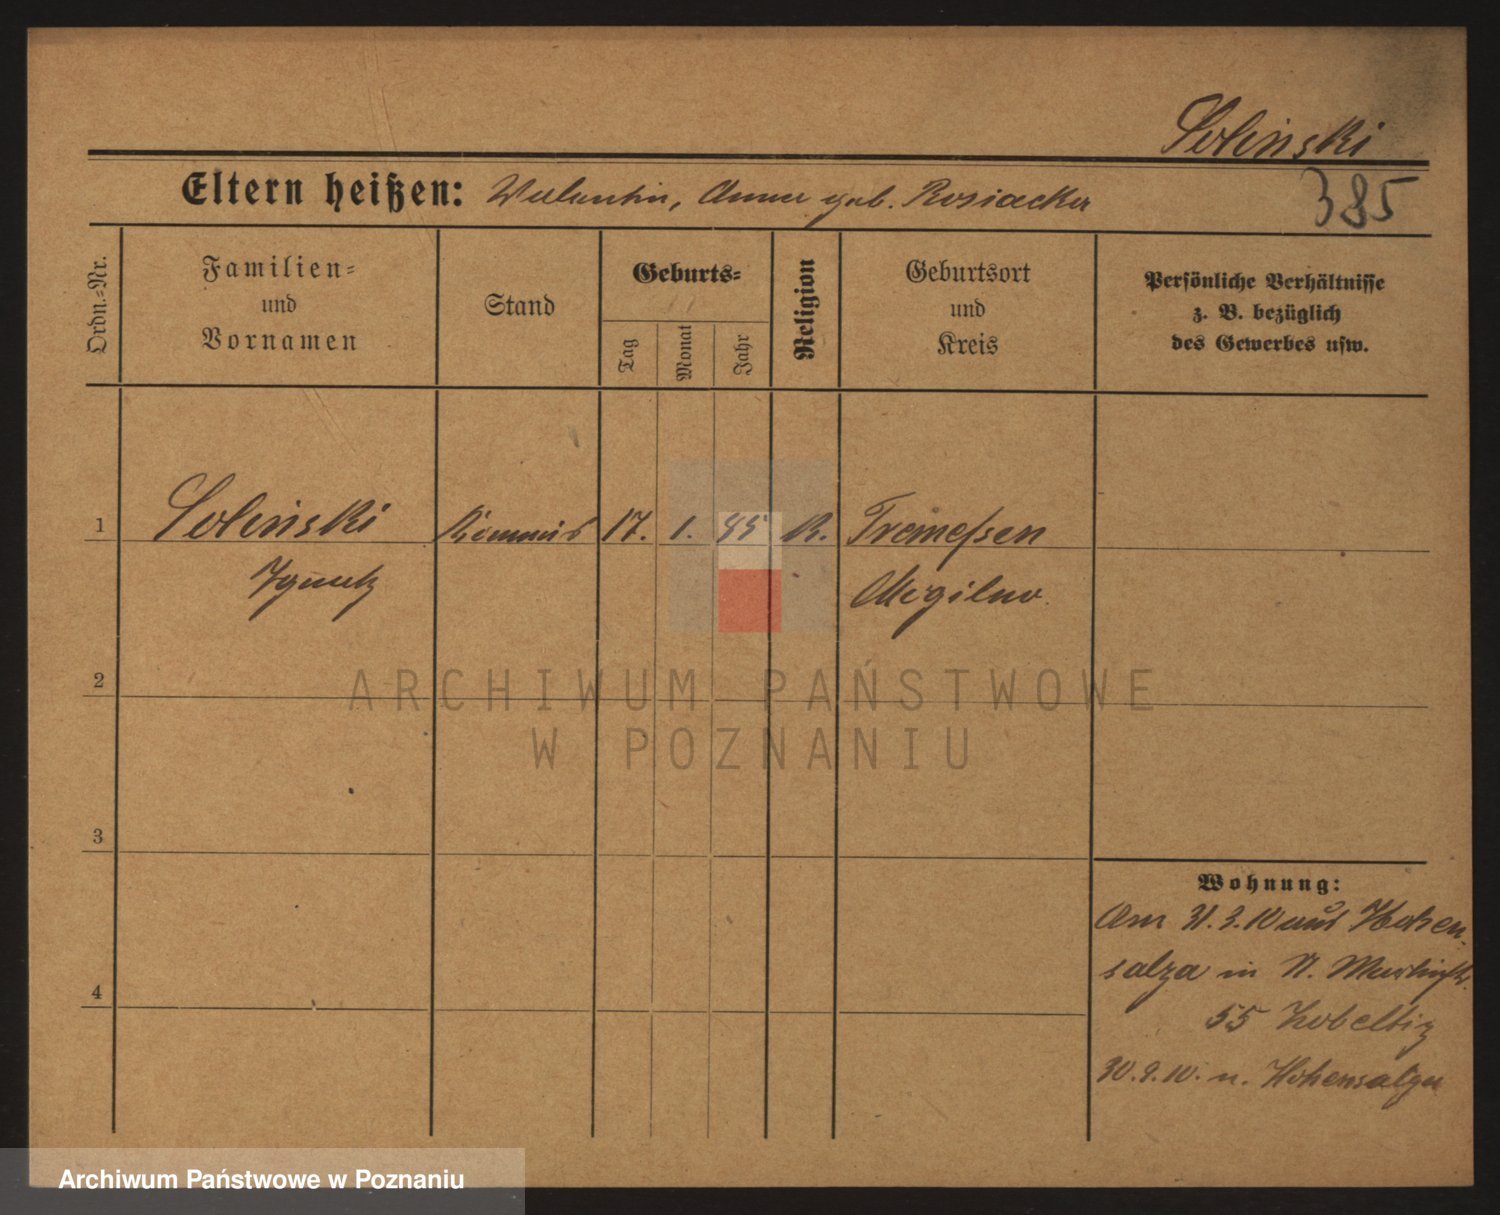 Solinski
Eltern heißen: Valentin, Anna geb. Rosiacka
385
Ordn.=Nr.
Familien=
und
Vornamen
Stand
Geburts=
Tag
Monat
Jahr
Religion
Geburtsort
und
Kreis
Persönliche Verhältnisse
z. B. bezüglich
des Gewerbes usw.
1
Solinski
17. 1. 85 K. Tremessen
Ignatz
Mogilno
2
3
4
Wohnung:
Am 31.3.10 aus Hohen-
salza in N.
55
30.9.10. n. Hohensalza
ARCHIWUM PAŃSTWOWE
W POZNANIU
Archiwum Państwowe w Poznaniu